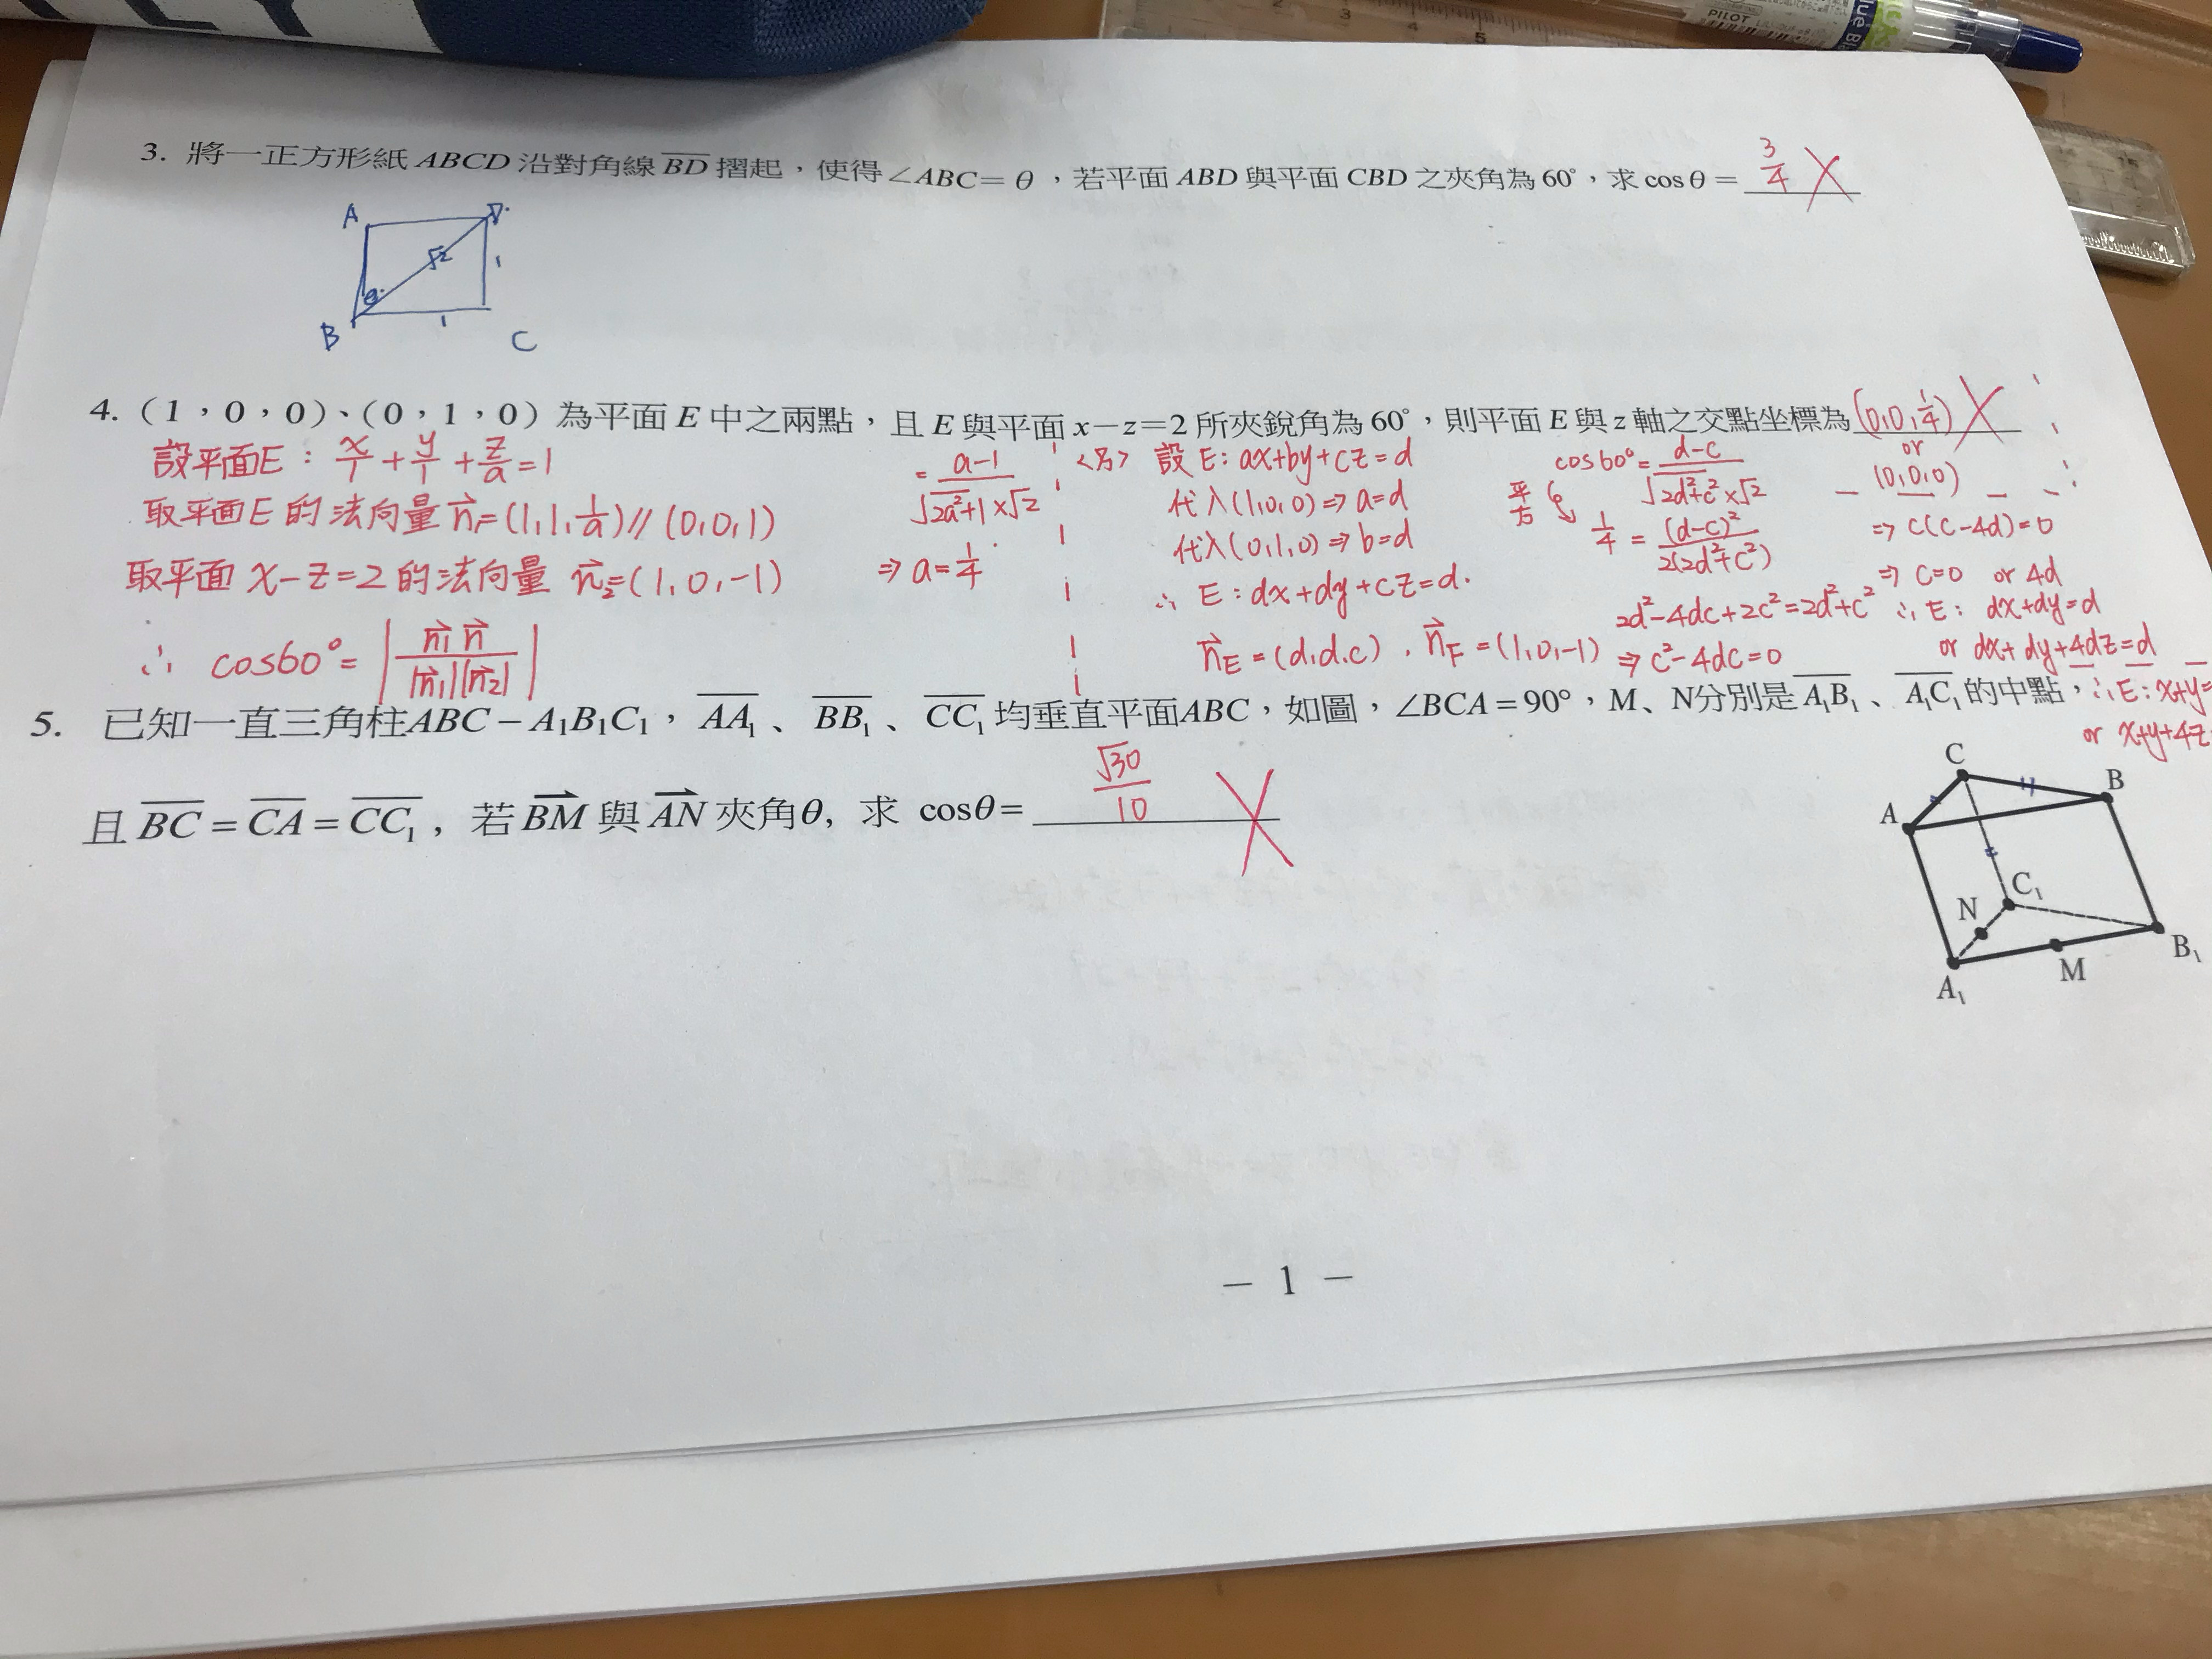 LY
PILOT
2 3 4 5
3. 將一正方形紙 ABCD 沿對角線 BD 摺起,使得∠ABC=θ,若平面 ABD 與平面 CBD 之夾角為 60°,求 cosθ = 3/4
A D
√2 1
θ
B 1 C
4. (1,0,0)、(0,1,0) 為平面 E 中之兩點,且 E 與平面 x−z=2 所夾銳角為 60°,則平面 E 與 z 軸之交點坐標為 (0,0,1/4)
or
(0,0,0)
設平面E : x/1 + y/1 + z/a = 1
取平面E 的法向量 n₁=(1,1,1/a) // (0,0,1)
取平面 x−z=2 的法向量 n₂=(1,0,−1)
∴ cos60°= |n₁ n / |n₁||n₂||
= a−1 / √2a²+1 ×√2
⇒ a=1/4
<另> 設 E: ax+by+cz=d
代入(1,0,0) ⇒ a=d
代入(0,1,0) ⇒ b=d
∴ E : dx+dy+cz=d.
n_E = (d,d,c) , n_F = (1,0,−1)
cos60°= d−c / √2d²+c² ×√2
平方 1/4 = (d−c)² / 2(2d²+c²)
2d²−4dc+2c²=2d²+c²
⇒ c²−4dc=0
⇒ c(c−4d)=0
⇒ c=0 or 4d
∴ E: dx+dy=d
or dx+dy+4dz=d
∴E: x+y=
or x+y+4z
5. 已知一直三角柱ABC−A₁B₁C₁, AA₁、BB₁、CC₁ 均垂直平面ABC,如圖,∠BCA=90°,M、N分別是 A₁B₁、A₁C₁ 的中點,
且 BC = CA = CC₁, 若 BM 與 AN 夾角θ, 求 cosθ= √30/10
C
B
A
C₁
N
B₁
M
A₁
− 1 −